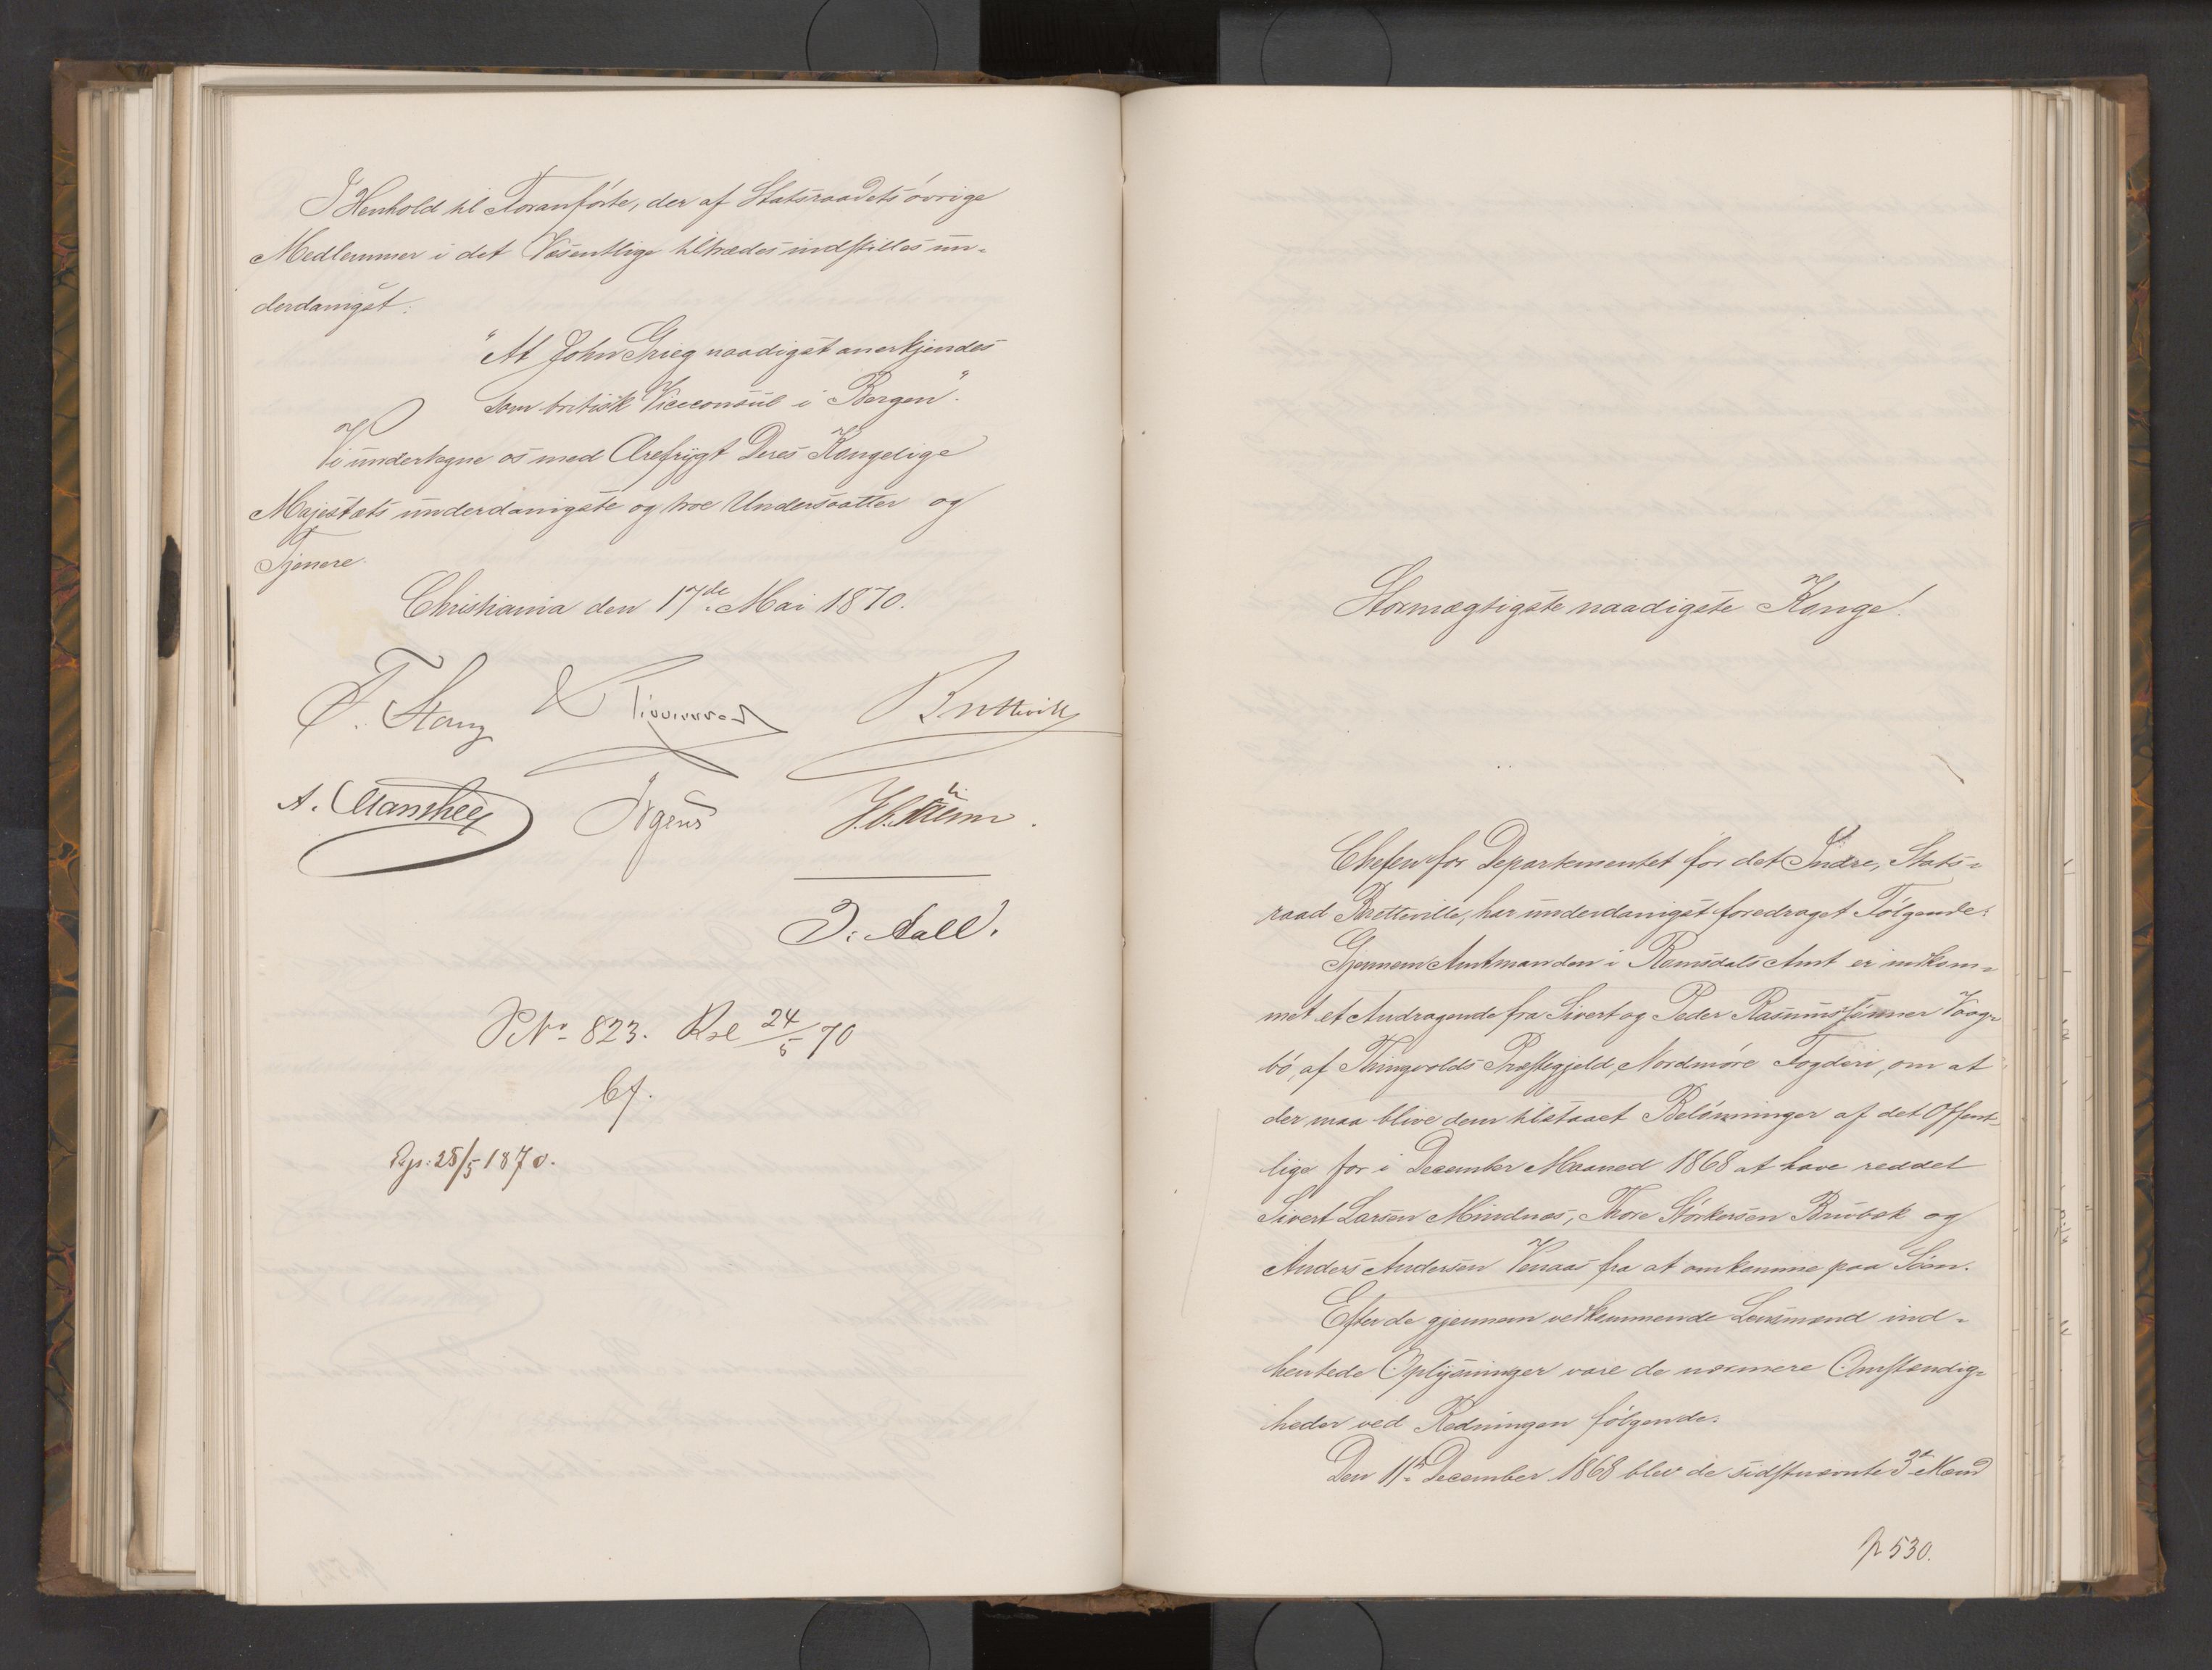 I Henhold til Foranførte, der af Statsraadets øvrige
Medlemmer i det Væsentlige tiltrædes indstilles un-
derdanigst:
"At John Grieg naadigst anerkjendes
som britisk Viceconsul i Bergen".
Vi undertegne os med Ærefrygt Deres Kongelige
Majestæts underdanigste og troe Undersaatter og
Tjenere.
Christiania den 17de Mai 1870.
F. Stang Bretteville
A. Manthey Irgens
J. Aall.
P. No 823. Rsl 24/5 70
Exp: 25/5 1870.
Stormægtigste naadigste Konge!
Chefen for Departementet for det Indre, Stats-
raad Bretteville, har underdanigst foredraget Følgende:
Gjennem Amtmanden i Romsdals Amt er indkom-
met et Andragende fra Sivert og Peder Rasmussønner Vaag-
bø, af Thingvolds Præstegjeld, Nordmøre Fogderi, om at
der maa blive dem tilstaaet Belønninger af det Offent-
lige for i December Maaned 1868 at have reddet
Sivert Larsen Mindnæs, Thore Størkersen Brubæk og
Anders Andersen Venaas fra at omkomme paa Søen.
Efter de gjennem vedkommende Lensmænd ind-
hentede Oplysninger vare de nærmere Omstændig-
heder ved Redningen følgende:
Den 11te December 1868 blev de sidstnævnte 3de Mænd
p 530.